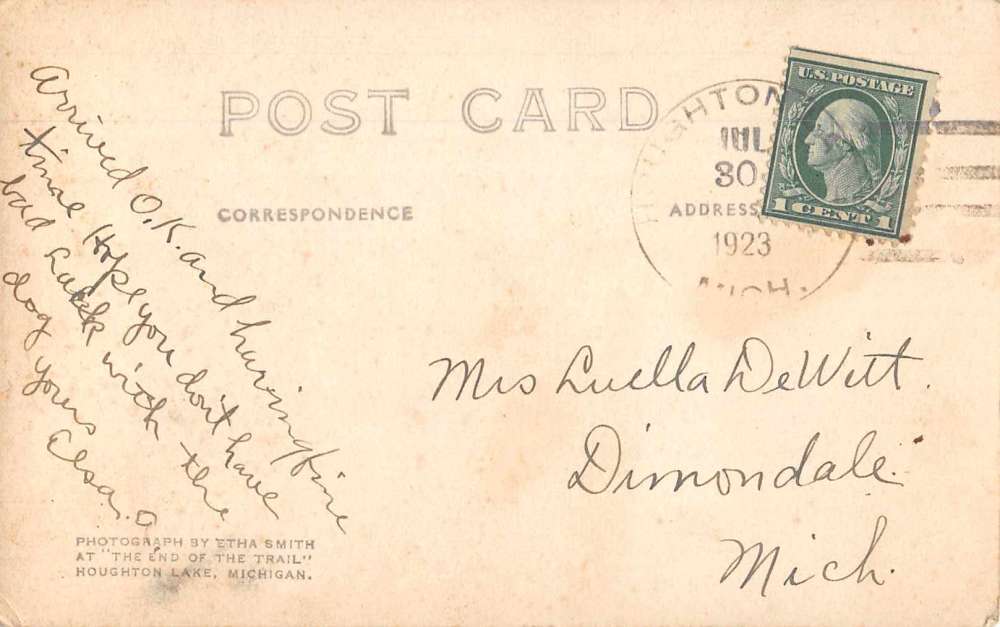 POST CARD
CORRESPONDENCE
ADDRESS
HOUGHTON
JUL
30
1923
MICH.
U.S. POSTAGE
1 CENT 1
Arrived O.K. and having fine
time Hope you don't have
bad luck with the
dog yours
Elsa.
Mrs Luella DeWitt.
Dimondale.
Mich.
PHOTOGRAPH BY ETHA SMITH
AT "THE END OF THE TRAIL"
HOUGHTON LAKE, MICHIGAN.